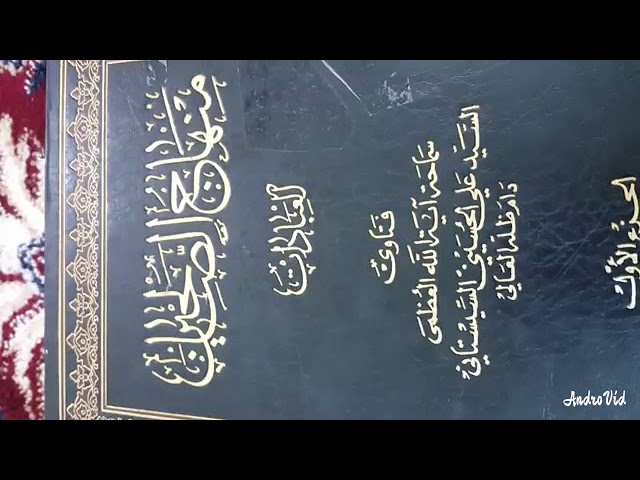 منهاج الصالحين
العبادات
فتاوى
سماحة آية الله العظمى
السيد علي الحسيني السيستاني
دام ظله العالي
الجزء الأول
AndroVid